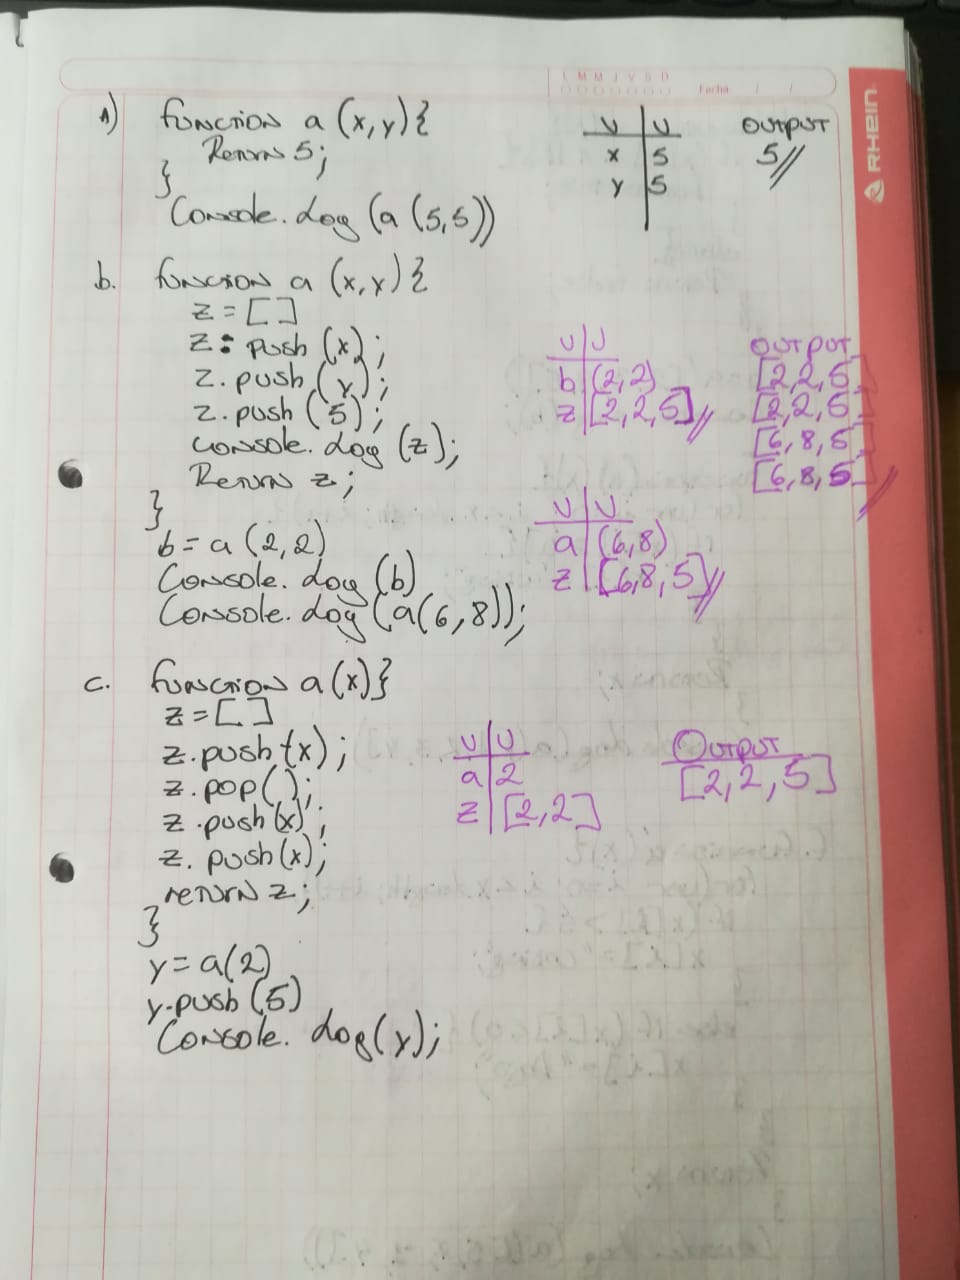 L M M J V S D
Fecha / /
RHEIN
A) function a (x,y){
Return 5;
}
Console.log (a (5,5))
V | V
x | 5
y | 5
OUTPUT
5//
b. function a (x,y){
z = []
z: push (x);
z.push (y);
z.push (5);
console.log (z);
Return z;
}
b = a (2,2)
Console.log (b)
Console.log (a(6,8));
V | V
b | (2,2)
z | [2,2,5]//
V | V
a | (6,8)
z | [6,8,5]//
OUTPUT
[2,2,5]
[2,2,5]
[6,8,5]
[6,8,5]//
c. function a(x)}
z = []
z.push (x);
z.pop();
z.push(x);
z.push(x);
return z;
}
y = a(2)
y.push (5)
Console.log(y);
V | V
a | 2
z | [2,2]
Output
[2,2,5]